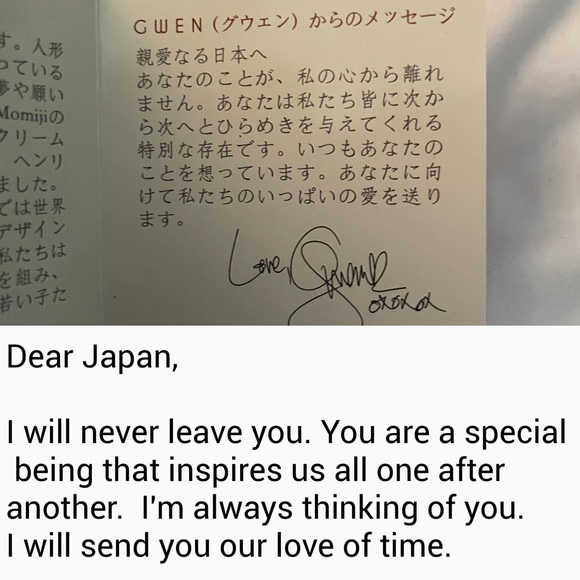 す。人形
っている
夢や願い
Momijiの
クリーム
ヘンリ
ました。
では世界
デザイン
私たちは
を組み、
若い子た
GWEN（グウェン）からのメッセージ
親愛なる日本へ
あなたのことが、私の心から離れ
ません。あなたは私たち皆に次か
ら次へとひらめきを与えてくれる
特別な存在です。いつもあなたの
ことを想っています。あなたに向
けて私たちのいっぱいの愛を送り
ます。
Love, Gwen
oxoxox
Dear Japan,
I will never leave you. You are a special
being that inspires us all one after
another. I'm always thinking of you.
I will send you our love of time.